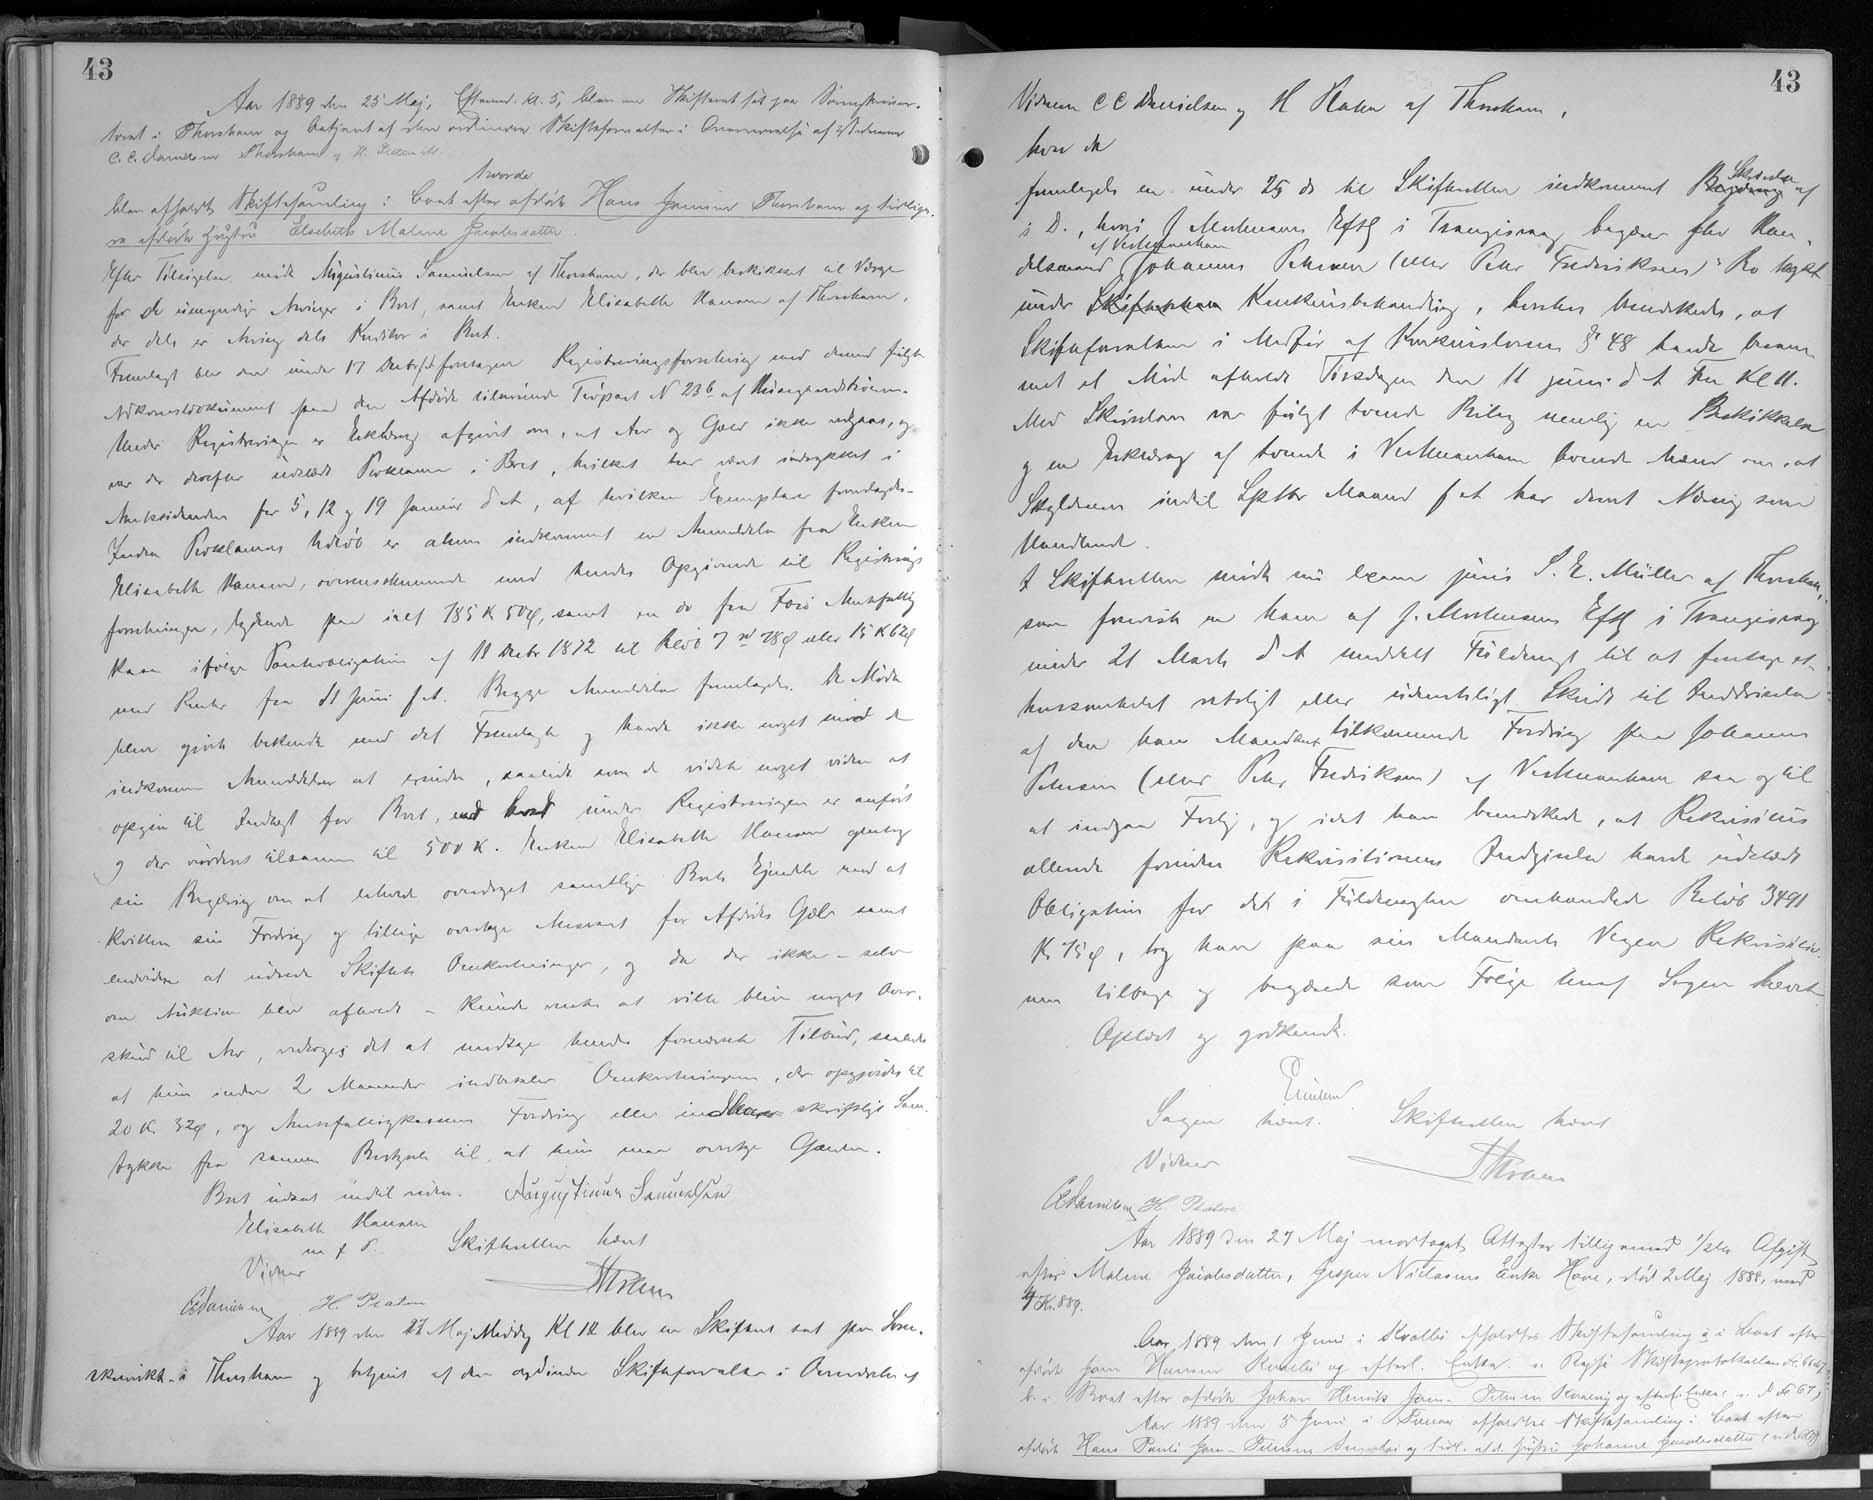 43
Aar 1889 den 25 Maj, Efterm. Kl. 5, blev en Skifteret sat paa Sorenskriver-
toret i Thorshavn og betjent af den ordinære Skifteforvalter i Overværelse af Vidnerne
C. C. Danielsen Thorshavn og H. Platon ibd.
hvorda
blev afholdt Skiftesamling i Boet efter afdøde Hans Thorshavn og tidlige-
re afdøde Hustru Elsebeth Malene Jacobsdatter.
Efter Tilsigelse mødte Augustinus Samuelsen af Thorshavn, der blev beskikket til Værge
for de umyndige Arvinger i Boet, samt Enken Elisabeth Hansen af Thorshavn,
der dels er Arving dels Kreditor i Boet.
Fremlagt blev den under 17 Decbr f A foretagne Registreringsforretning med dermed fulgte
Adkomstdokument paa den Afdøde tilhørende Huspart N 236 af
Under Registreringen er Erklæring afgivet om, at Arv og Gæld ikke vedgaas, og
var der derefter udstedt Proklama i Boet, hvilket har været indrykket i
for 5, 12 og 19 Januar d A, af hvilken Exemplarer fremlagdes.
Inden Proklamas Udløb er alene indkommet en Anmeldelse fra Enken
Elisabeth Hansen, overensstemmende med hendes Opgivende til Registrerings
forretningen, lydende paa ialt 785 K 50 ø, samt en do fra Færø Amtsfattig
kasse ifølge Panteobligation af 11 Decbr 1872 til Beløb 7 rd 78 eller 15 K 62 ø
med Renter fra 11 Juni f A. Begge Anmeldelser fremlagdes. De Mødte
blev gjort bekendt med det Fremlagte og havde ikke noget imod de
indkomne Anmeldelser at erindre, saalidt som de vidste noget videre at
opgive til Indtægt for Boet, end hvad under Registreringen er anført
og der vurderet tilsammen til 500 K. Enken Elisabeth Hansen gentog
sin Begæring om at erholde overdraget samtlige Boets Ejendele mod at
kvittere sin Fordring og tillige overtage Ansvaret for Afdødes Gæld samt
endvidere at udrede Skiftets Omkostninger, og da der ikke - selv
om Auktion blev afholdt - kunde ventes at ville blive noget Over-
skud til Arv, vedtoges det at modtage hendes fornævnte Tilbud, saaledes
at hun inden 2 Maaneder indbetaler Omkostningerne, der opgjordes til
20 K. 32 ø, og Amtsfattigkassens Fordring eller skriftligt Sam-
tykke fra sammes Bestyrelse til, at hun maa overtage Gælden.
Boet udsat indtil videre. Augustinus Samuelsen
Elisabeth Hansen
m f P. Skifteretten hævet
Vidner
CCDanielsen H. Platon
Aar 1889 den 27 Maj Middag Kl 12 blev en Skifteret sat paa Soren-
skriverktr. i Thorshavn og betjent af den ordinære Skifteforvalter i Overværelse af
43
Vidnerne C C Danielsen og H Platon af Thorshavn,
hvor da
fremlagdes en under 25 ds til Skifteretten indkommet Begæring Skrivelse af
s D., hvori J Mortensens Eftf i Trangisvaag begærer fhv Han-
delsmand af Vestmanhavn Johannes Petersen (eller Peter Frederiksen)s Bo taget
under Konkursbehandling, hvorhos bemærkedes, at
Skifteforvalteren i Medfør af Konkurslovens § 48 havde beram-
met et Møde afholdt Tirsdagen den 11 Juni d A Fm Kl 11.
Med Skrivelsen var fulgt tvende Bilag nemlig en Beskikkelse
og en Erklæring af tvende i Vestmanhavn boende Mænd om, at
Skyldneren indtil Septbr Maaned f A har drevet Næring som
Handlende.
I Skifteretten mødte nu exam juris S. E. Müller af Thorshavn,
som foreviste en ham af J. Mortensens Eftf i Trangisvaag
under 21 Marts d A meddelt Fuldmagt til at foretage et-
hvertsomhelst retsligt eller udenretsligt Skridt til Inddrivelse
af den hans Mandant tilkommende Fordring paa Johannes
Petersen (eller Peter Frederiksen) af Vestmanhavn saa og til
at indgaa Forlig, og idet han bemærkede, at Rekvisitus
allerede forinden Rekvisitionens Indgivelse havde udstedt
Obligation for det i Fuldmagten omhandlede Beløb 3491
K. 75 ø, tog han paa sin Mandants Vegne Rekvisitio-
nen tilbage og begærede som Følge heraf Sagen hævet.
Oplæst og godkendt.
Sagen hævet. Skifteretten hævet
Vidner
CCDanielsen H. Platon
Aar 1889 den 27 Maj modtaget Attester tilligemed 1/2% Afgift
efter Malene Jacobsdatter, Jesper Niclasens Enke Hove, død 2 Maj 1888, med
4 Kr. 889.
Aar 1889 den 1 Juni i Kvalbø afholdtes Skiftesamling a i Boet efter
afdøde Hansen Kvalbø og efterl. Enke. v. Rejse Skifteprotokollen
b. i Boet efter afdøde Johan Henrik Petersen og efterl. Enke v. d. 67,
Aar 1889 den 5 Juni i afholdtes Skiftesamling i Boet efter
afdøde Hans Pauli Petersen og tidl. afd. Hustru Johanne Jacobsdatter